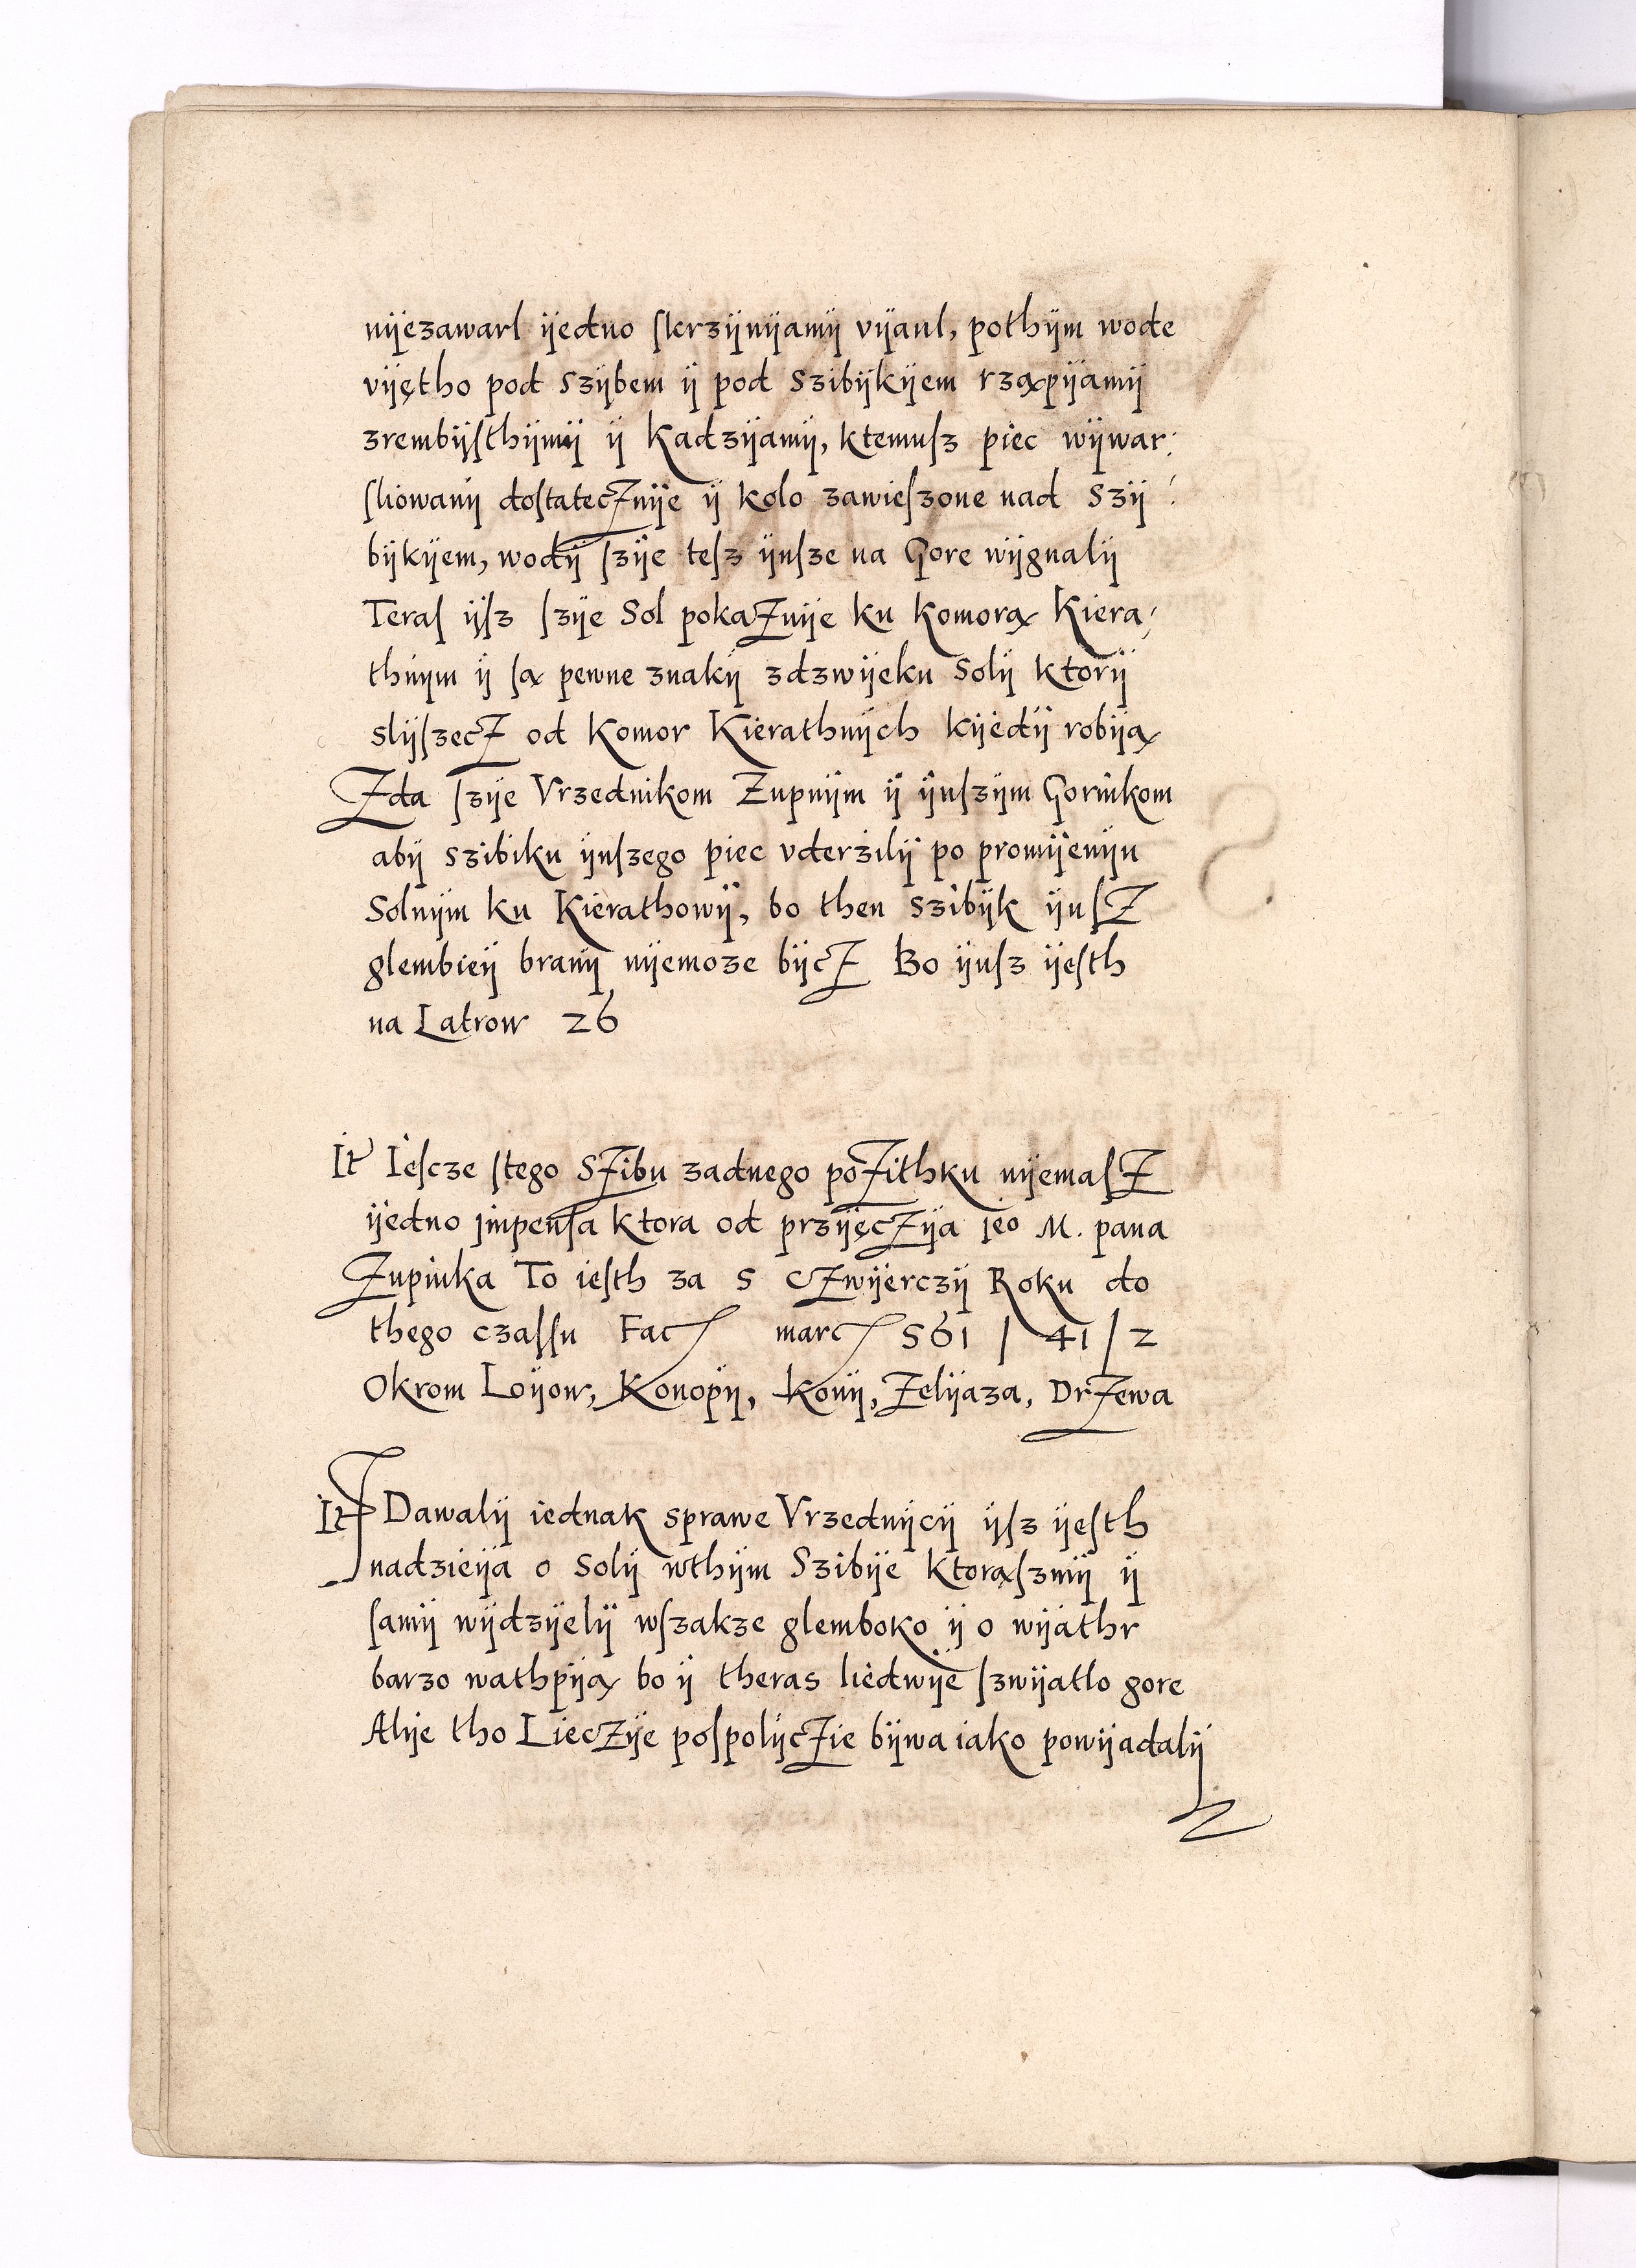 nÿezawarl ÿedno ſkrzÿnÿamÿ vÿanl, pothÿm wode
vÿętho pod szÿbem ÿ pod szibÿkÿem rząpÿamÿ
zrembÿſthÿmÿ ÿ Kadzÿamÿ, ktemuſz piec wÿwar:
ſliowanÿ doſtatecznÿe ÿ kolo zawieſzone nad szÿ:
bÿkÿem, wodÿ ſzÿe teſz ÿnſze na Gore wÿgnalÿ
Teraſ ÿſz ſzÿe Sol pokaznÿe ku komorą Kiera,
thnÿm ÿ ſą pewne znakÿ zdzwÿeku Solÿ ktorÿ
slÿſzecz od Komor Kierathnÿch kÿedÿ robÿą
Zda ſzÿe Vrzednikom Zupnÿm ÿ ÿnſzÿm Gornikom
abÿ szibiku ÿnſzego piec vderzilÿ po promÿenÿu
Solnÿm ku Kierathowÿ, bo then szibÿk ÿnſz
glembieÿ branÿ nÿemoze bÿcz Bo ÿnſz ÿeſth
na Latrow 26
It Ieſcze ſtego szibu zadnego pozithku nÿemaſz
ÿedno jmpenſa ktora od przÿęczÿa jeo M. pana
Zupinka To ieſth za 5 czwÿerczÿ Roku do
thego czaſſu Fac marc 561 / 41 / 2
Okrom Loÿow, Konopÿ, konÿ, zelÿaza, Drzewa
It Dawalÿ iednak sprawe Vrzednÿcÿ ÿſz ÿeſth
nadzieÿa o Solÿ wthÿm Szibÿe ktorąſzmÿ ÿ
ſamÿ wÿdzÿelÿ wſzakze glemboko ÿ o wÿathr
barzo wathpÿą bo ÿ theras liedwÿe ſzwÿatlo gore
Alÿe tho Lieczÿe poſpolÿczie bÿwa iako powÿadalÿ